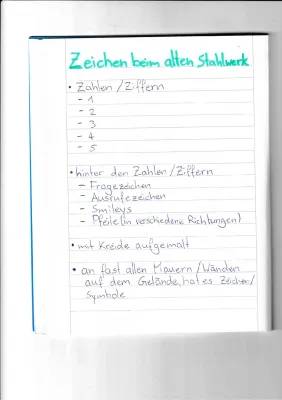 Zeichen beim alten Stahlwerk
• Zahlen/Ziffern
- 1
- 2
- 3
- 4
- 5
• hinter den Zahlen/Ziffern
- Fragezeichen
- Ausrufezeichen
- Smileys
- Pfeile (in verschiedene Richtungen)
• mit Kreide aufgemalt
• an fast allen Mauern/Wänden
auf dem Gelände, hat es Zeichen/
Symbole